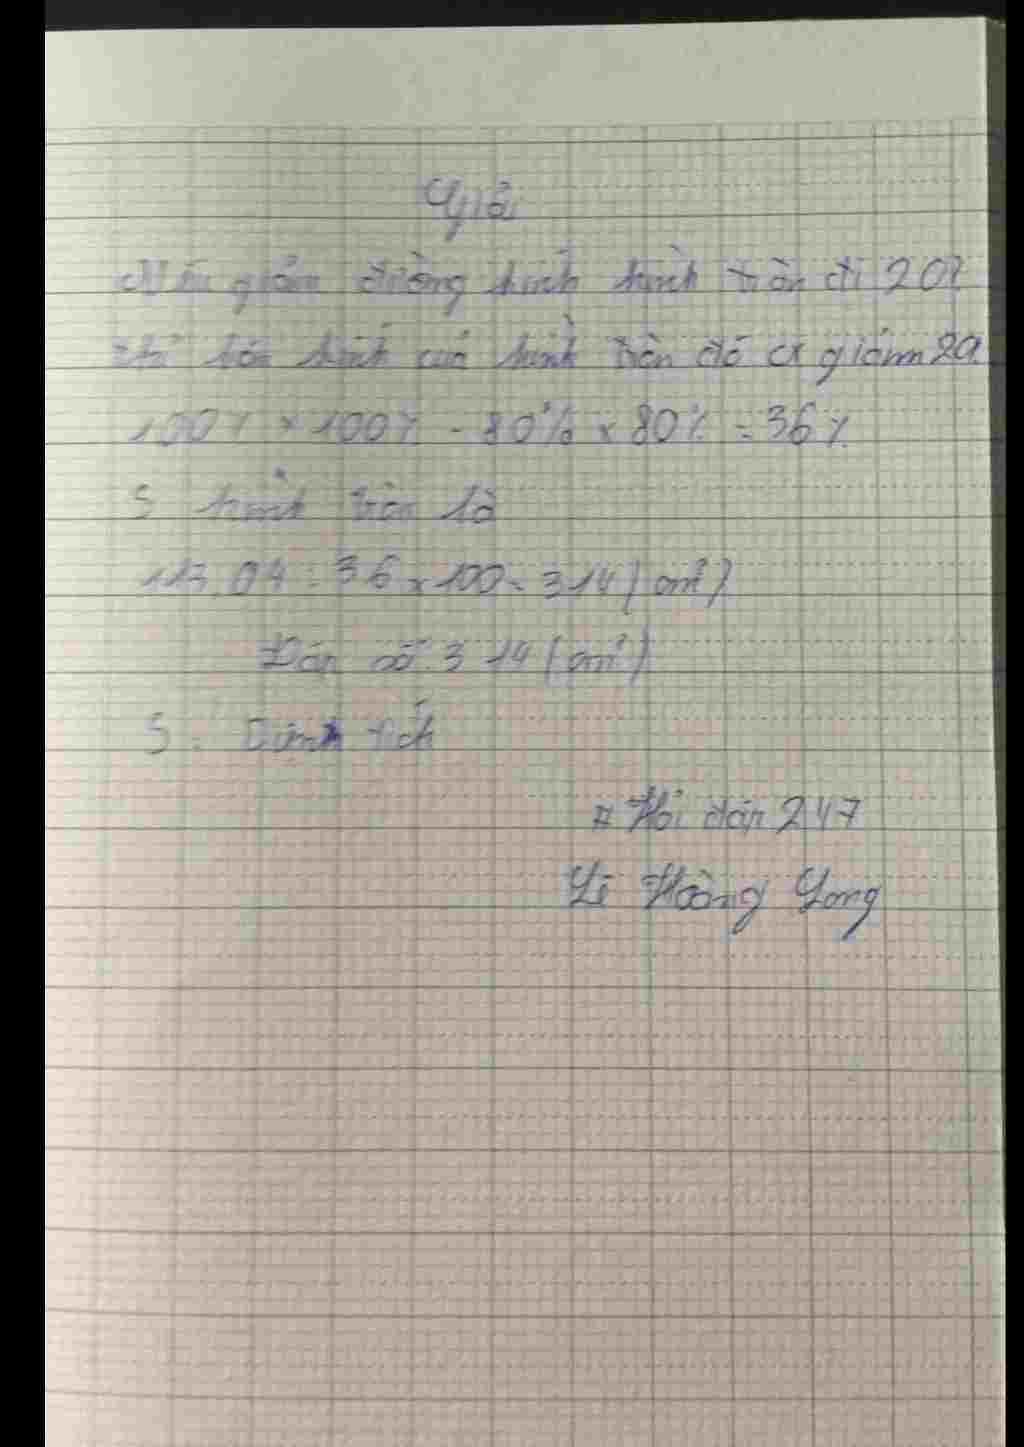 Giải
Nếu giảm đường kính hình tròn đi 20%
thì bán kính của hình tròn đó cx giảm 20
100% × 100% - 80% × 80% = 36%
S hình tròn là
113,04 : 36 × 100 = 314 (cm²)
Đáp số 314 (cm²)
S: Diện tích
# Hỏi đáp 247
Lê Hoàng Long